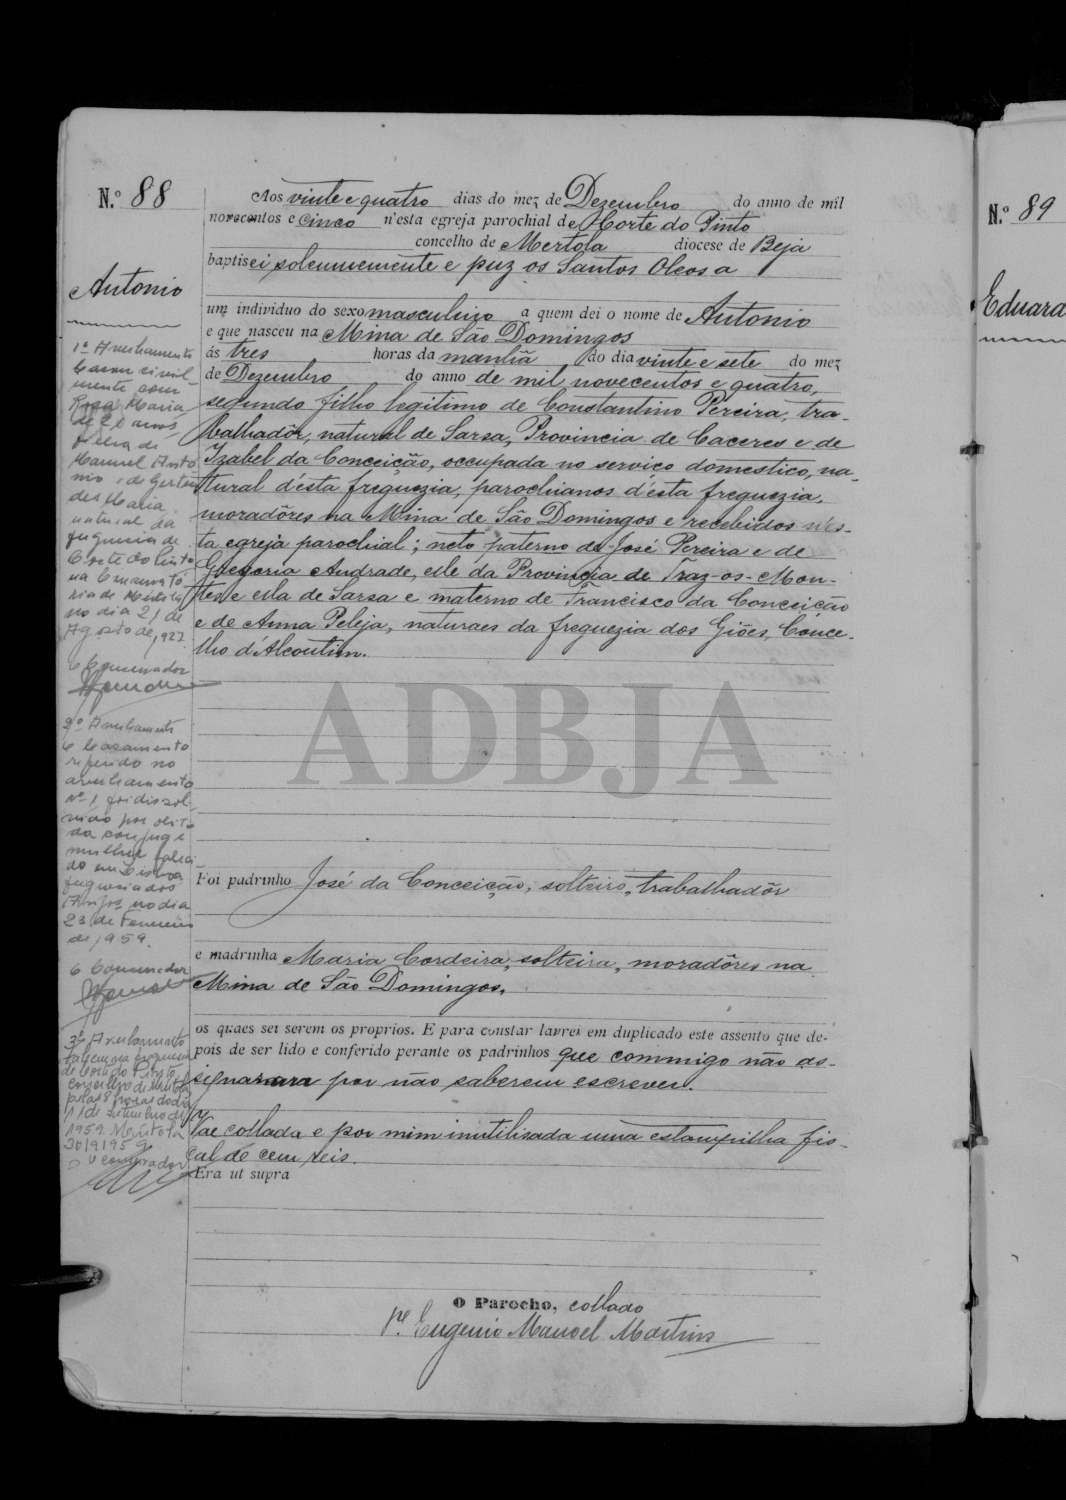 N.º 88
Antonio
1º Averbamento
Casou civil-
mente com
Rosa Maria
de 21 anos
filha de
Manuel Anto
nio e de Gertru
des Maria
natural da
freguesia de
Corte do Pinto
na Conservató
ria de Mértola
no dia 21 de
Agosto de 1927
O Conservador
2º Averbamento
O casamento
referido no
averbamento
nº 1 foi dissol-
vido por obito
da conjuge
mulher faleci
do em Lisboa
freguesia dos
Anjos no dia
23 de Fevereiro
de 1959.
O Conservador
3º Averbamento
Faleceu na freguesia
de Corte do Pinto
concelho de Mertola
pelas 8 horas do dia
11 de setembro de
1959. Mértola
30/9/959
O Conservador
Aos vinte e quatro dias do mez de Dezembro do anno de mil
novecentos e cinco n'esta egreja parochial de Corte do Pinto
concelho de Mertola diocese de Beja
baptisei solemnemente e puz os Santos Oleos a
um individuo do sexo masculino a quem dei o nome de Antonio
e que nasceu na Mina de São Domingos
ás tres horas da manhã do dia vinte e sete do mez
de Dezembro do anno de mil novecentos e quatro,
segundo filho legitimo de Constantino Pereira, tra-
balhadôr, natural de Sarsa, Provincia de Caceres e de
Izabel da Conceição, occupada no serviço domestico, na-
tural d'ésta freguezia, parochianos d'ésta freguezia,
moradôres na Mina de São Domingos e recebidos n'és-
ta egreja parochial; neto paterno de José Pereira e de
Gregoria Andrade, elle da Provincia de Traz-os-Mon-
tes e ella de Sarsa e materno de Francisco da Conceição
e de Anna Peleja, naturaes da freguezia dos Giões, Conce-
lho d'Alcoutim.
ADBJA
Foi padrinho José da Conceição, solteiro, trabalhadôr
e madrinha Maria Cordeira, solteira, moradôres na
Mina de São Domingos,
os quaes sei serem os proprios. E para constar lavrei em duplicado este assento que de-
pois de ser lido e conferido perante os padrinhos que commigo não as-
signaram por não saberem escrever.
Vae collada e por mim inutilisada uma estampilha fis-
cal de cem reis.
Era ut supra
O Parocho, collado
Pe. Eugenio Manoel Martins
N.º 89
Eduard